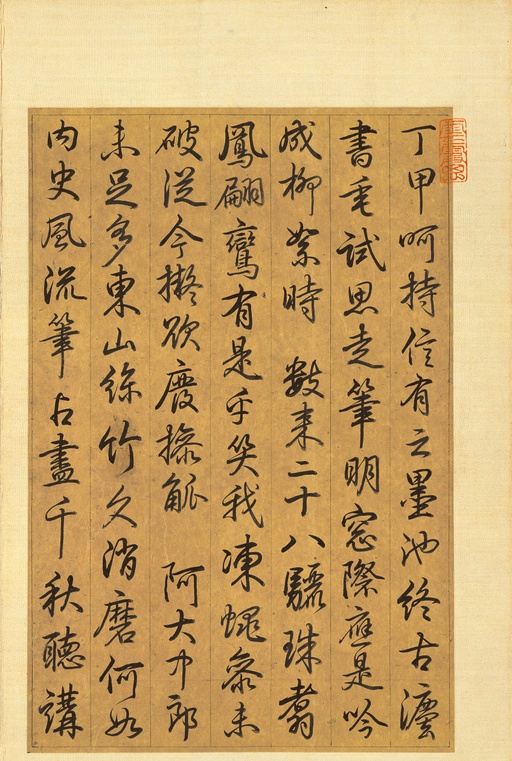 丁甲呵持信有之墨池終古灋
書垂試思走筆明窓際應是吟
成柳絮時　數來二十八驪珠翥
鳳翩鸞有是乎笑我凍蠅參未
破從今擬欲廢操觚　阿大中郎
未足多東山絲竹久消磨何如
内史風流筆占盡千秋聽講